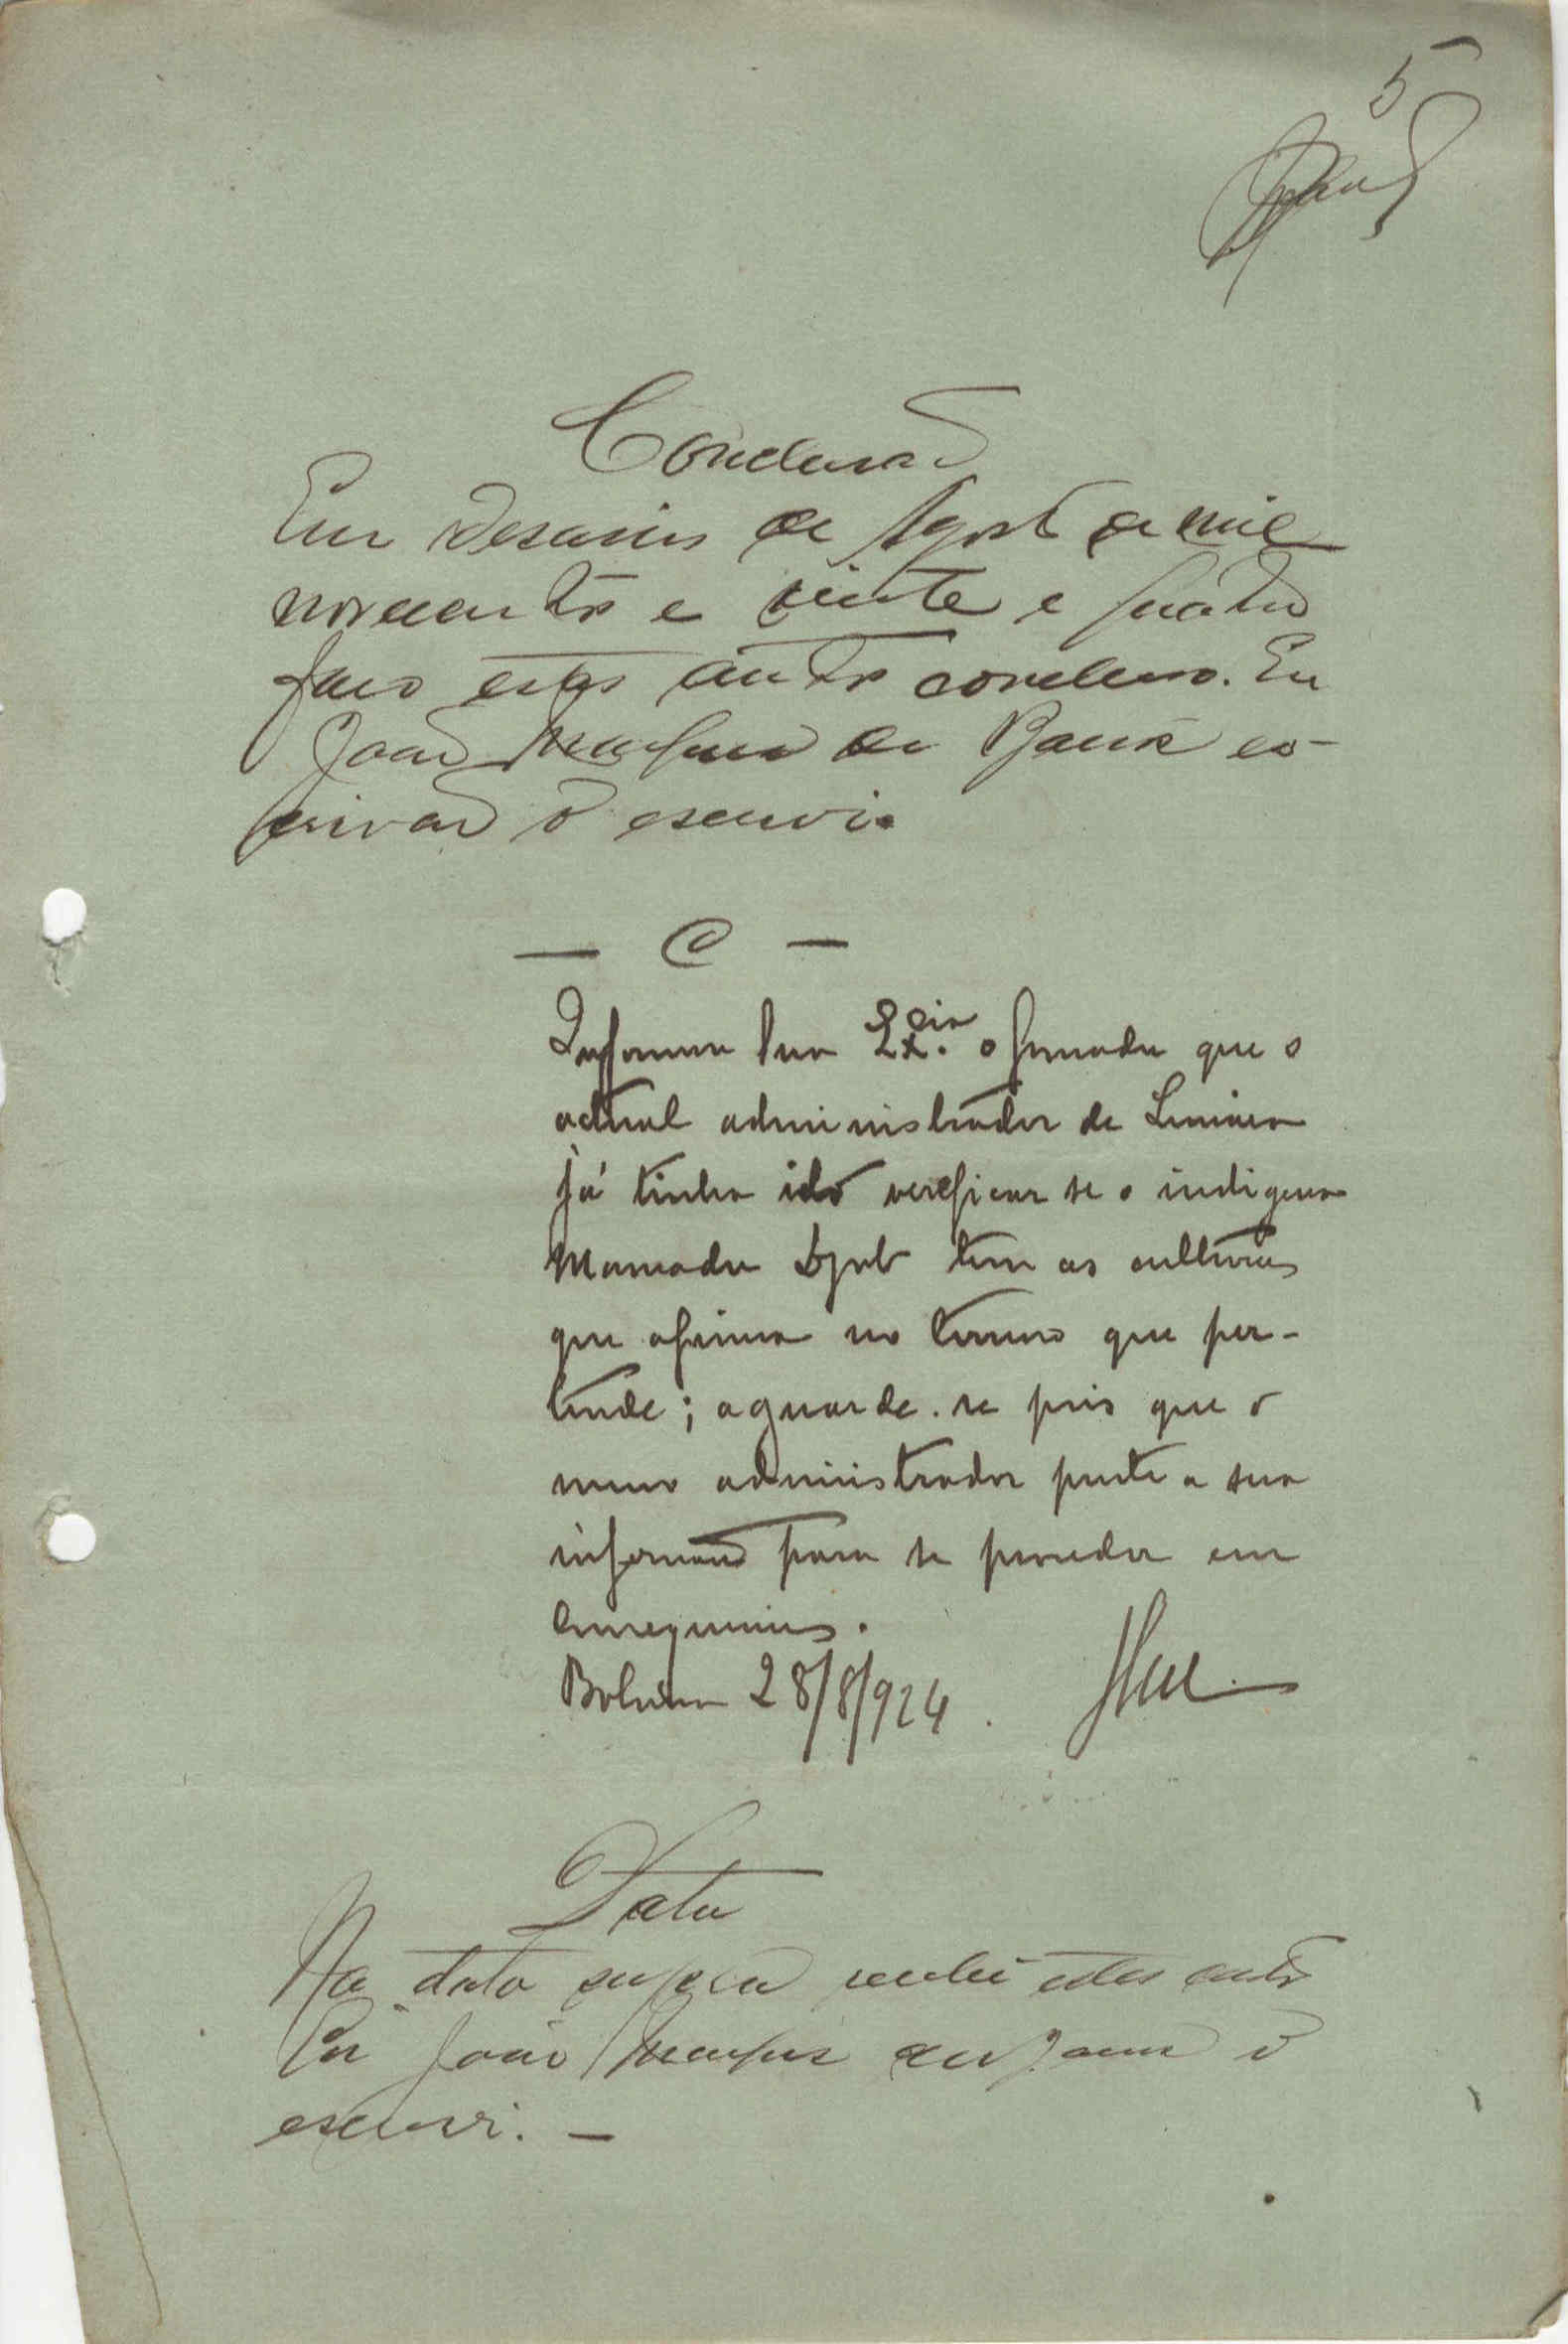 5
Conclusão
Em deseseis de Agosto de mil
novecentos e vinte e quatro
faço estes autos conclusos. Eu
João de Barros es-
crivão o escrevi.
— C —
Informou Sua Ex.cia o que o
actual administrador de
já tinha ido verificar se o indigena
Mamadu tem as culturas
que afirma no terreno que per-
tende; aguarde-se pois que o
novo administrador preste a sua
informação para se proceder em
consequencia.
Bolama 28/8/924.
Data
Na data supra recebi estes autos
Eu João o
escrevi. —